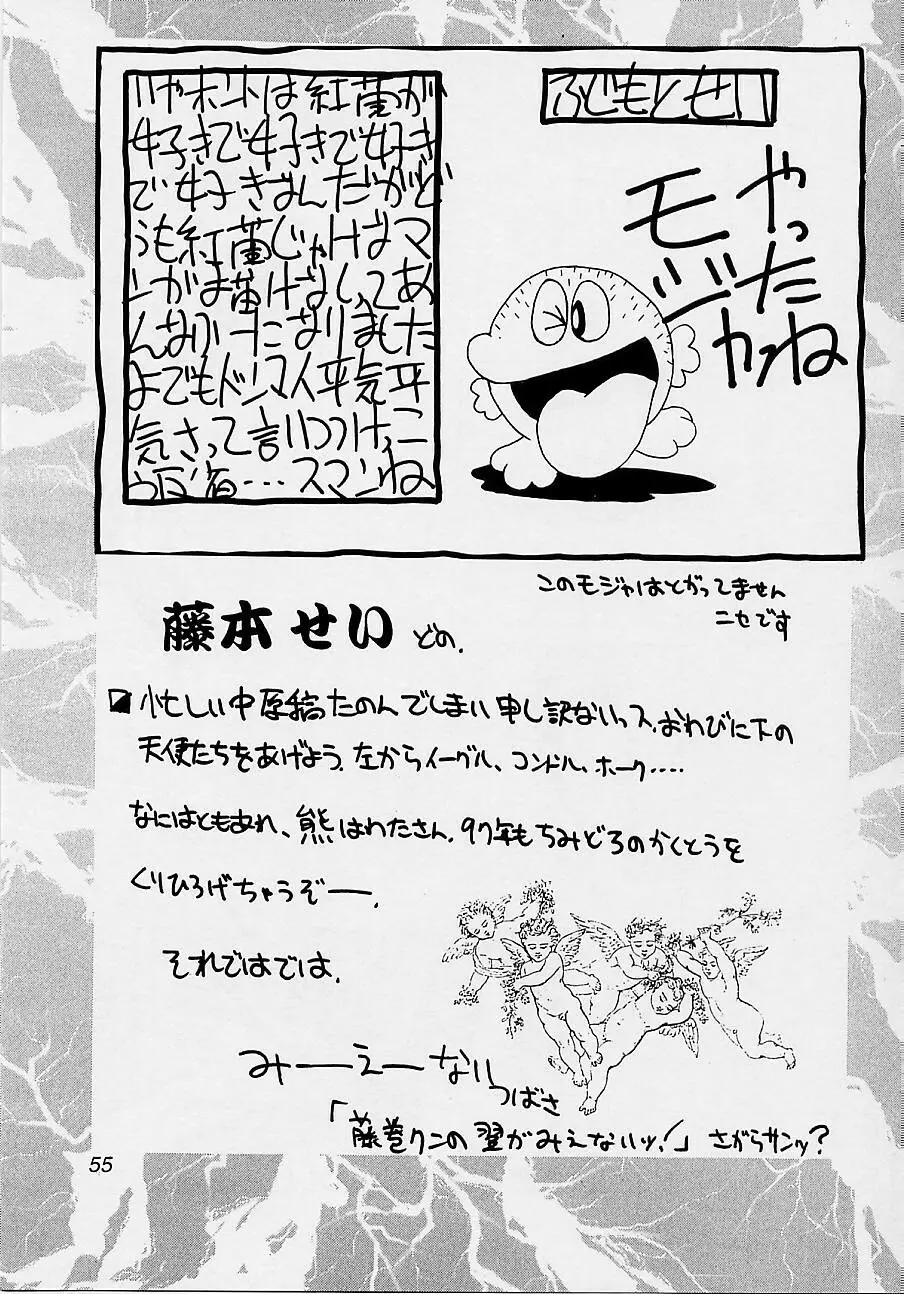 ふじもとせい
いやホントは紅蘭が
好きで好きで好き
で好きなんだがど
うも紅蘭じゃげばマ
ンガは描けなくてあ
んなかったになりました
よでもドンマイ平気平
気さって言いつつけっこ
う反省…スマンね
やったね
モジャ
このモジャはとがってません
ニセです
藤本せい どの.
忙しい中原稿たのんでしまい申し訳ないっス.おわびに下の
天使たちをあげよう.左からイーグル、コンドル、ホーク‥‥
なにはともあれ、熊はわたさん.97年もちみどろのかくとうを
くりひろげちゃうぞ――.
それではでは.
みーえーない
つばさ
「藤巻クンの翼がみえないッ!」さがらサンッ?
55